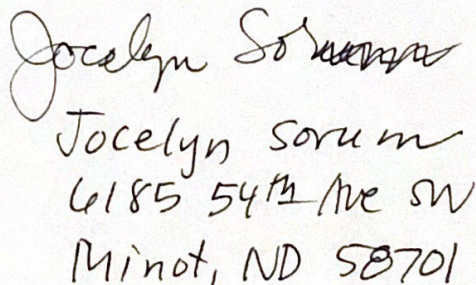 Jocelyn Sorum
Jocelyn Sorum
6185 54th Ave SW
Minot, ND 58701